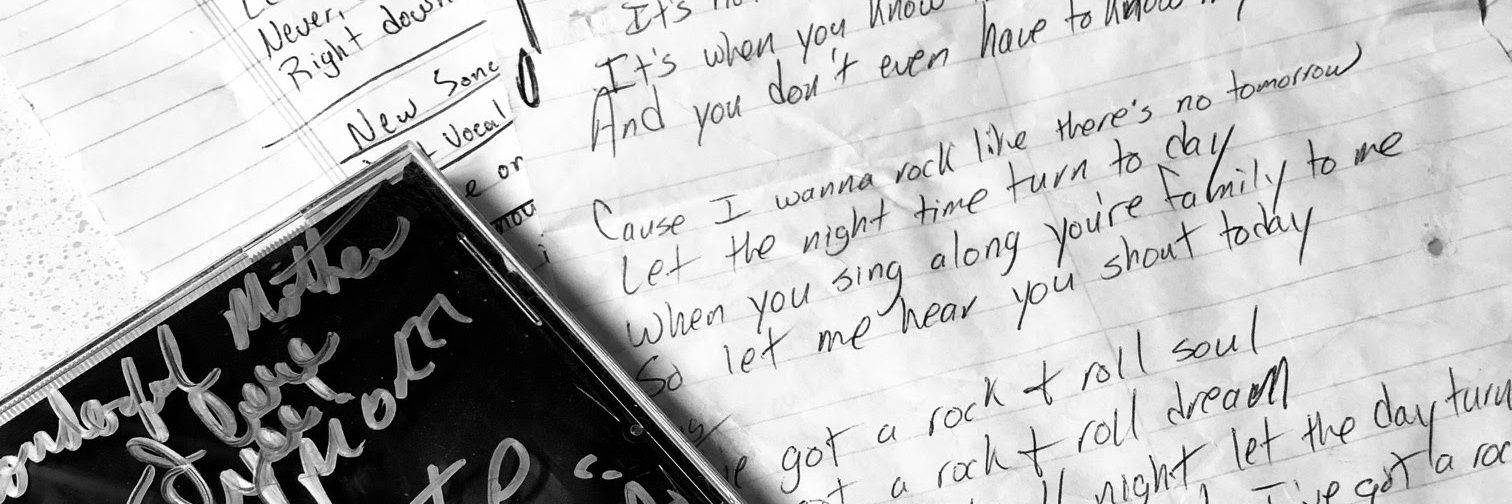 Never,
Right down
New Song
Vocal
e or
It's
It's when you know
And you don't even have to know
Cause I wanna rock like there's no tomorrow
Let the night time turn to day
When you sing along you're family to me
So let me hear you shout today
got a rock & roll soul
a rock & roll dream
night let the day turn
I've got a roc
Mother
I love
you
Mom